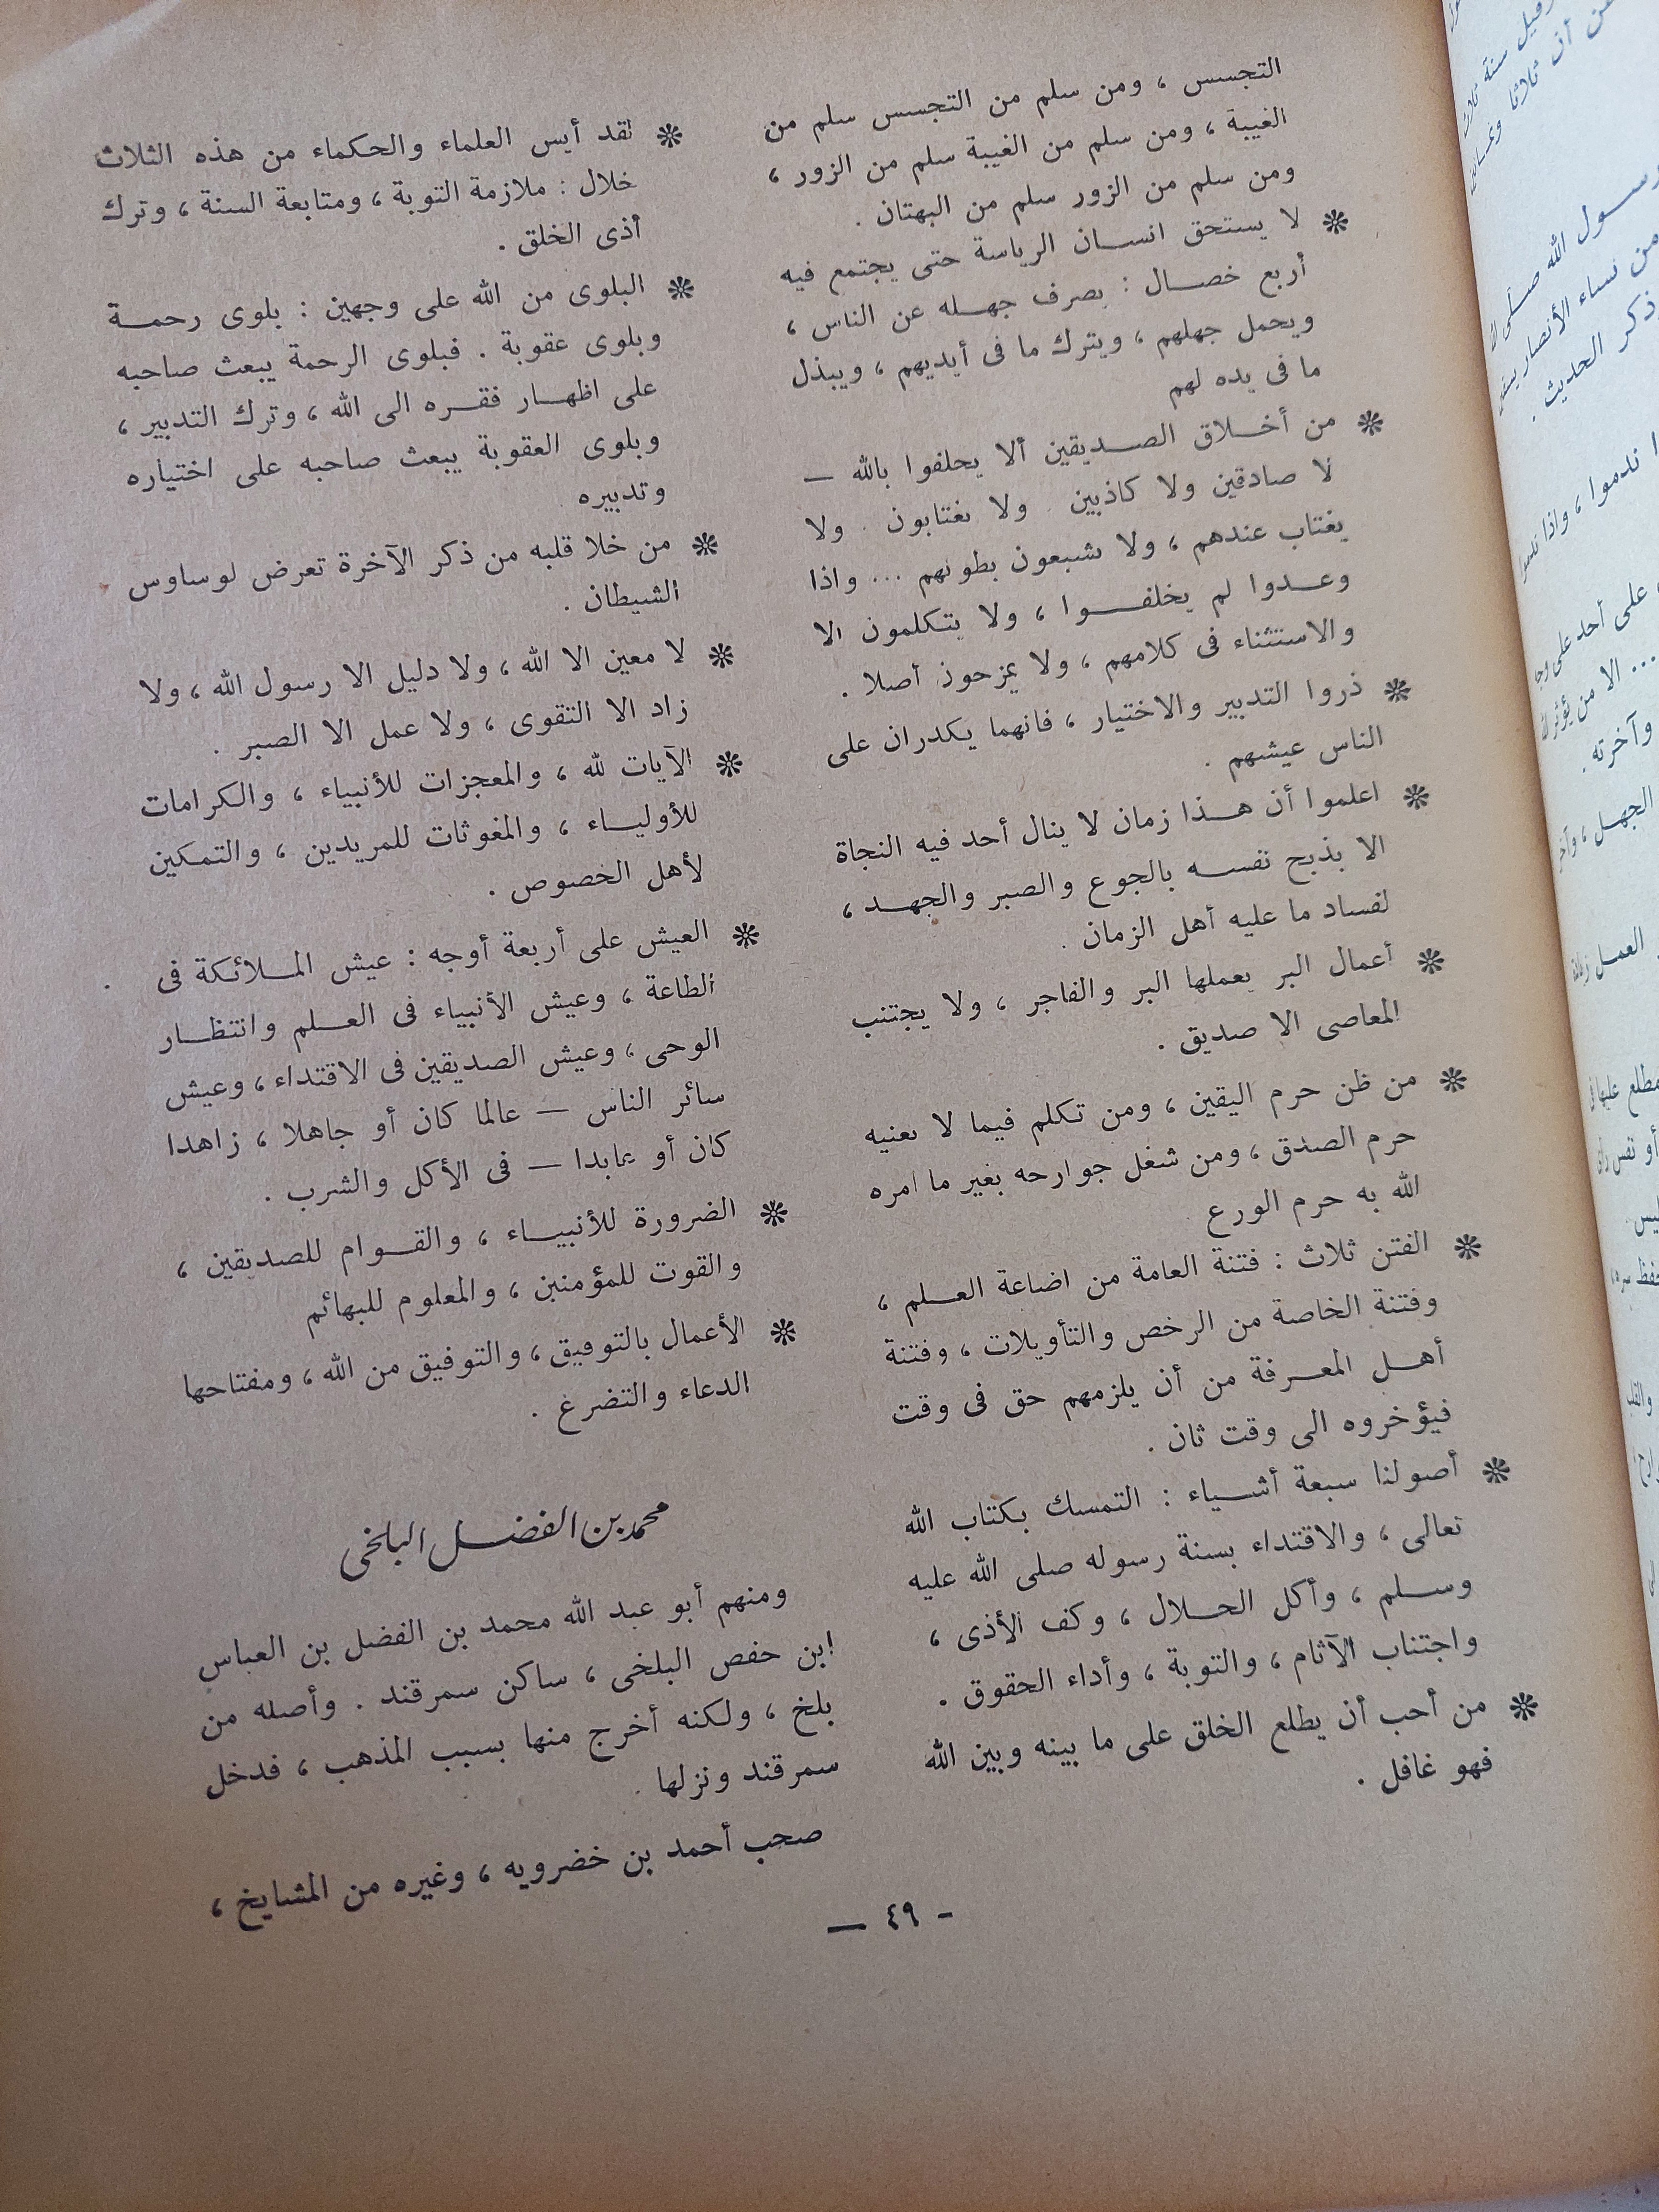 التجسس ، ومن سلم من التجسس سلم من
الغيبة ، ومن سلم من الغيبة سلم من الزور ،
ومن سلم من الزور سلم من البهتان .
❋ لا يستحق انسان الرياسة حتى يجتمع فيه
أربع خصال : يصرف جهله عن الناس ،
ويحمل جهلهم ، ويترك ما فى أيديهم ، ويبذل
ما فى يده لهم
❋ من أخلاق الصديقين ألا يحلفوا بالله —
لا صادقين ولا كاذبين . ولا يغتابون . ولا
يغتاب عندهم ، ولا يشبعون بطونهم ... واذا
وعدوا لم يخلفوا ، ولا يتكلمون الا
والاستثناء فى كلامهم ، ولا يمزحون أصلا .
❋ ذروا التدبير والاختيار ، فانهما يكدران على
الناس عيشهم .
❋ اعلموا أن هذا زمان لا ينال أحد فيه النجاة
الا بذبح نفسه بالجوع والصبر والجهد ،
لفساد ما عليه أهل الزمان .
❋ أعمال البر يعملها البر والفاجر ، ولا يجتنب
المعاصى الا صديق .
❋ من ظن حرم اليقين ، ومن تكلم فيما لا يعنيه
حرم الصدق ، ومن شغل جوارحه بغير ما أمره
الله به حرم الورع
❋ الفتن ثلاث : فتنة العامة من اضاعة العلم ،
وفتنة الخاصة من الرخص والتأويلات ، وفتنة
أهل المعرفة من أن يلزمهم حق فى وقت
فيؤخروه الى وقت ثان .
❋ أصولنا سبعة أشياء : التمسك بكتاب الله
تعالى ، والاقتداء بسنة رسوله صلى الله عليه
وسلم ، وأكل الحلال ، وكف الأذى ،
واجتناب الآثام ، والتوبة ، وأداء الحقوق .
❋ من أحب أن يطلع الخلق على ما بينه وبين الله
فهو غافل .
❋ لقد أيس العلماء والحكماء من هذه الثلاث
خلال : ملازمة التوبة ، ومتابعة السنة ، وترك
أذى الخلق .
❋ البلوى من الله على وجهين : بلوى رحمة
وبلوى عقوبة . فبلوى الرحمة يبعث صاحبه
على اظهار فقره الى الله ، وترك التدبير ،
وبلوى العقوبة يبعث صاحبه على اختياره
وتدبيره
❋ من خلا قلبه من ذكر الآخرة تعرض لوساوس
الشيطان .
❋ لا معين الا الله ، ولا دليل الا رسول الله ، ولا
زاد الا التقوى ، ولا عمل الا الصبر .
❋ الآيات لله ، والمعجزات للأنبياء ، والكرامات
للأولياء ، والمغوثات للمريدين ، والتمكين
لأهل الخصوص .
❋ العيش على أربعة أوجه : عيش الملائكة فى
الطاعة ، وعيش الأنبياء فى العلم وانتظار
الوحى ، وعيش الصديقين فى الاقتداء ، وعيش
سائر الناس — عالما كان أو جاهلا ، زاهدا
كان أو عابدا — فى الأكل والشرب .
❋ الضرورة للأنبياء ، والقوام للصديقين ،
والقوت للمؤمنين ، والمعلوم للبهائم
❋ الأعمال بالتوفيق ، والتوفيق من الله ، ومفتاحها
الدعاء والتضرع .
محمد بن الفضل البلخى
ومنهم أبو عبد الله محمد بن الفضل بن العباس
ابن حفص البلخى ، ساكن سمرقند . وأصله من
بلخ ، ولكنه أخرج منها بسبب المذهب ، فدخل
سمرقند ونزلها .
صحب أحمد بن خضرويه ، وغيره من المشايخ ،
— ٤٩ —
رسول الله صلى الله
من نساء الأنصار
ذكر الحديث .
ندموا ، واذا
على أحد على
... الا من يؤثر الله
وآخرته .
الجهل ،
العمل